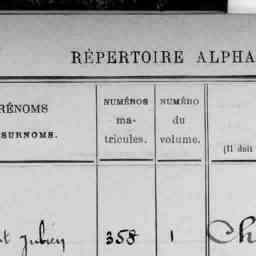 RÉPERTOIRE ALPHA
RÉNOMS
SURNOMS.
NUMÉROS
ma-
tricules.
NUMÉRO
du
volume.
(Il doit
358 1 Ch